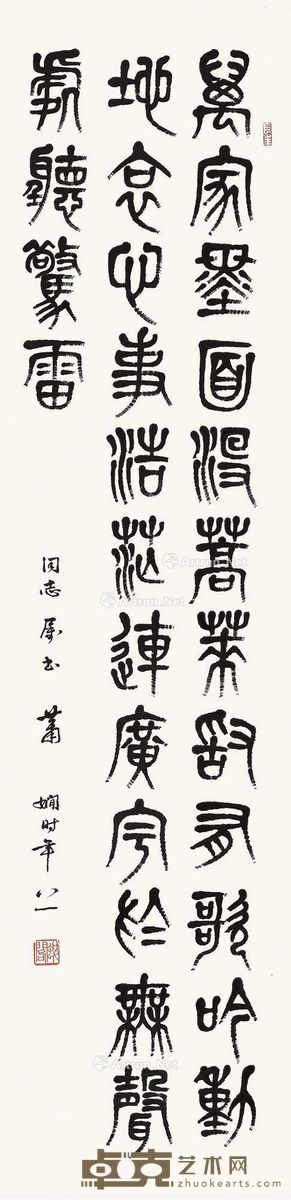 萬家墨面没蒿萊敢有歌吟動
地哀心事浩茫連廣宇於無聲
處聽驚雷
同志属书 蕭嫻时年八一
Artron.Net
卓克艺术网
zhuokearts.com